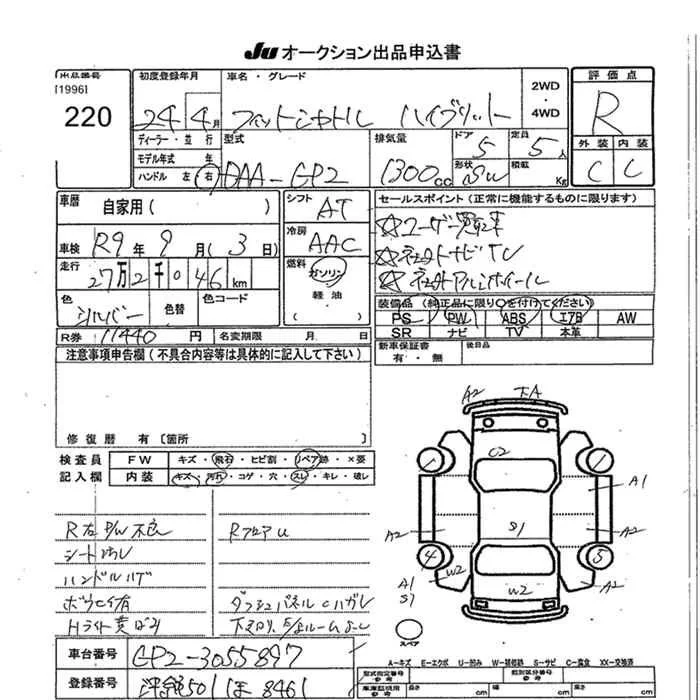 Ju オークション出品申込書
出品番号 初度登録年月 車名・グレード 2WD・4WD 評価点
[1996]
220
24年4月 フィットシャトル ハイブリッド R
ディーラー・並行 型式 排気量 ドア 定員 外装 内装
モデル年式 年 5 5人
ハンドル 左 右 DAA-GP2 1300cc 形状 積載 Kg C C
車歴 自家用( ) シフト AT セールスポイント(正常に機能するものに限ります)
車検 R9年9月(3日) 冷房 AAC ☆ユーザー買取車
走行 27万2千046km 燃料 ガソリン ☆社外ナビTV
軽油 ☆社外アルミホイール
色 シルバー 色替 色コード
装備品(純正品に限り○を付けてください)
PS PW ABS エアB AW
SR ナビ TV 本革
R券 11440円 名変期限 月 日
新車保証書 有・無 後日品
注意事項申告欄(不具合内容等は具体的に記入して下さい)
修復歴 有[箇所 ]
検査員 FW キズ・飛石・ヒビ割・リペア跡・×要
記入欄 内装 キズ・汚れ・コゲ・穴・スレ・キレ・破レ
A2 下A
O2
1
A1
A2 S1 A2
4 5
A1 W2 W2 A2
S1
スペア
R右P/W不良 RフロアU
シート汚レ
ハンドルハゲ
ボウセイ有 ダッシュパネルCハガレ
Hライト黄ばみ
車台番号 GP2-3055897
登録番号 501 ほ 8461
A-キズ E-エクボ U-凹み W-補修跡 S-サビ C-腐食 XX-交換済
型式指定番号 参考 類別区分番号 参考
車庫証明用 参考 長さ cm 幅 cm 高さ cm